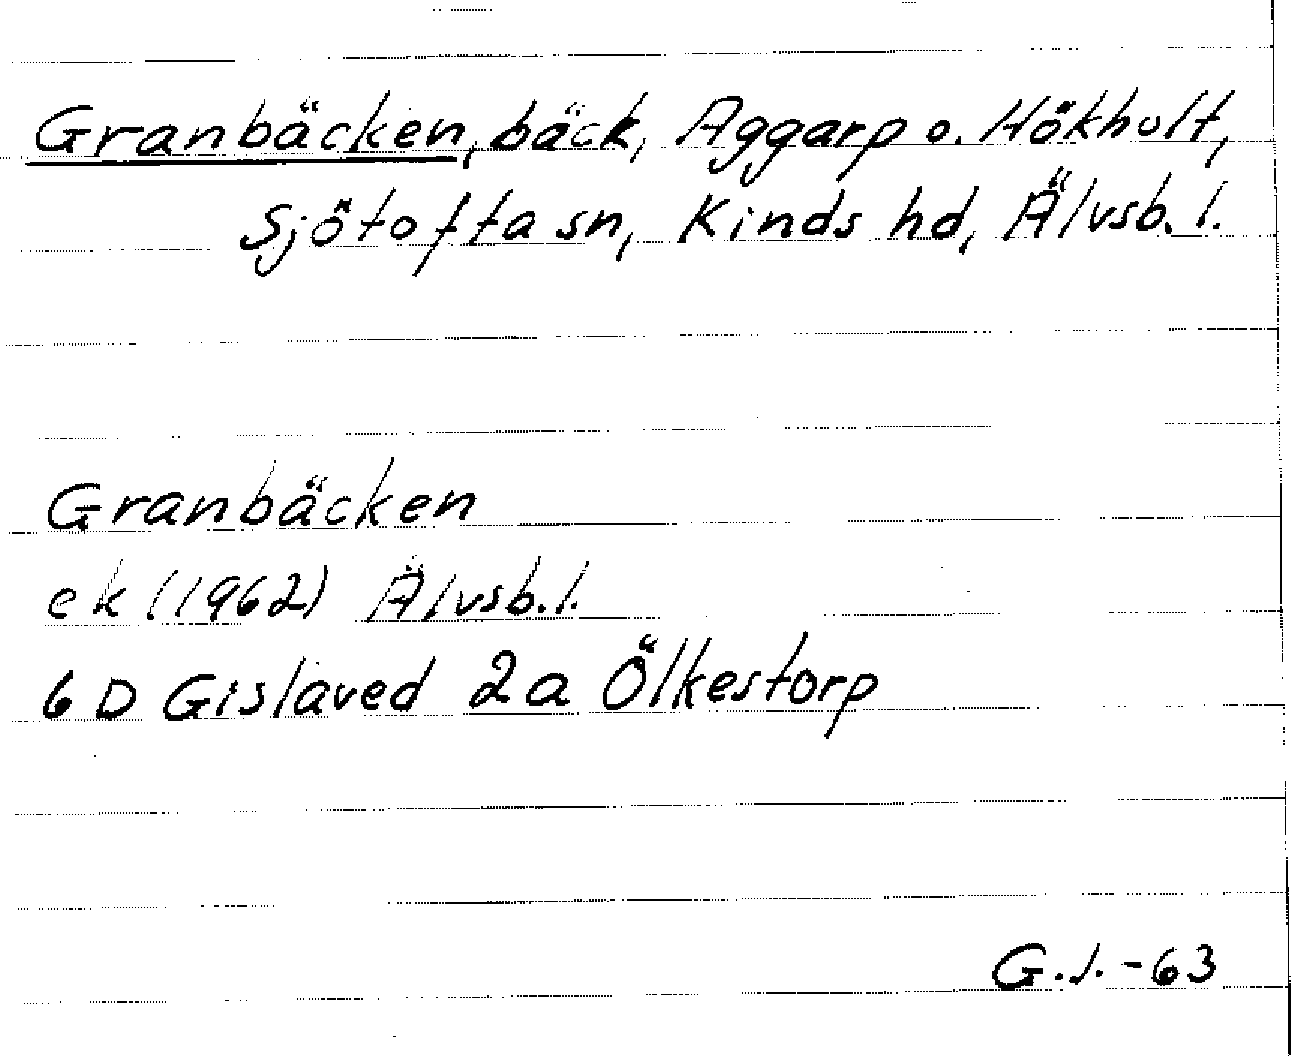 Granbäcken, bäck, Aggarp o. Hökhult,
Sjötofta sn, Kinds hd, Älvsb. l.
Granbäcken
ek (1962) Älvsb. l.
6 D Gislaved 2a Ölkestorp
G.J.-63